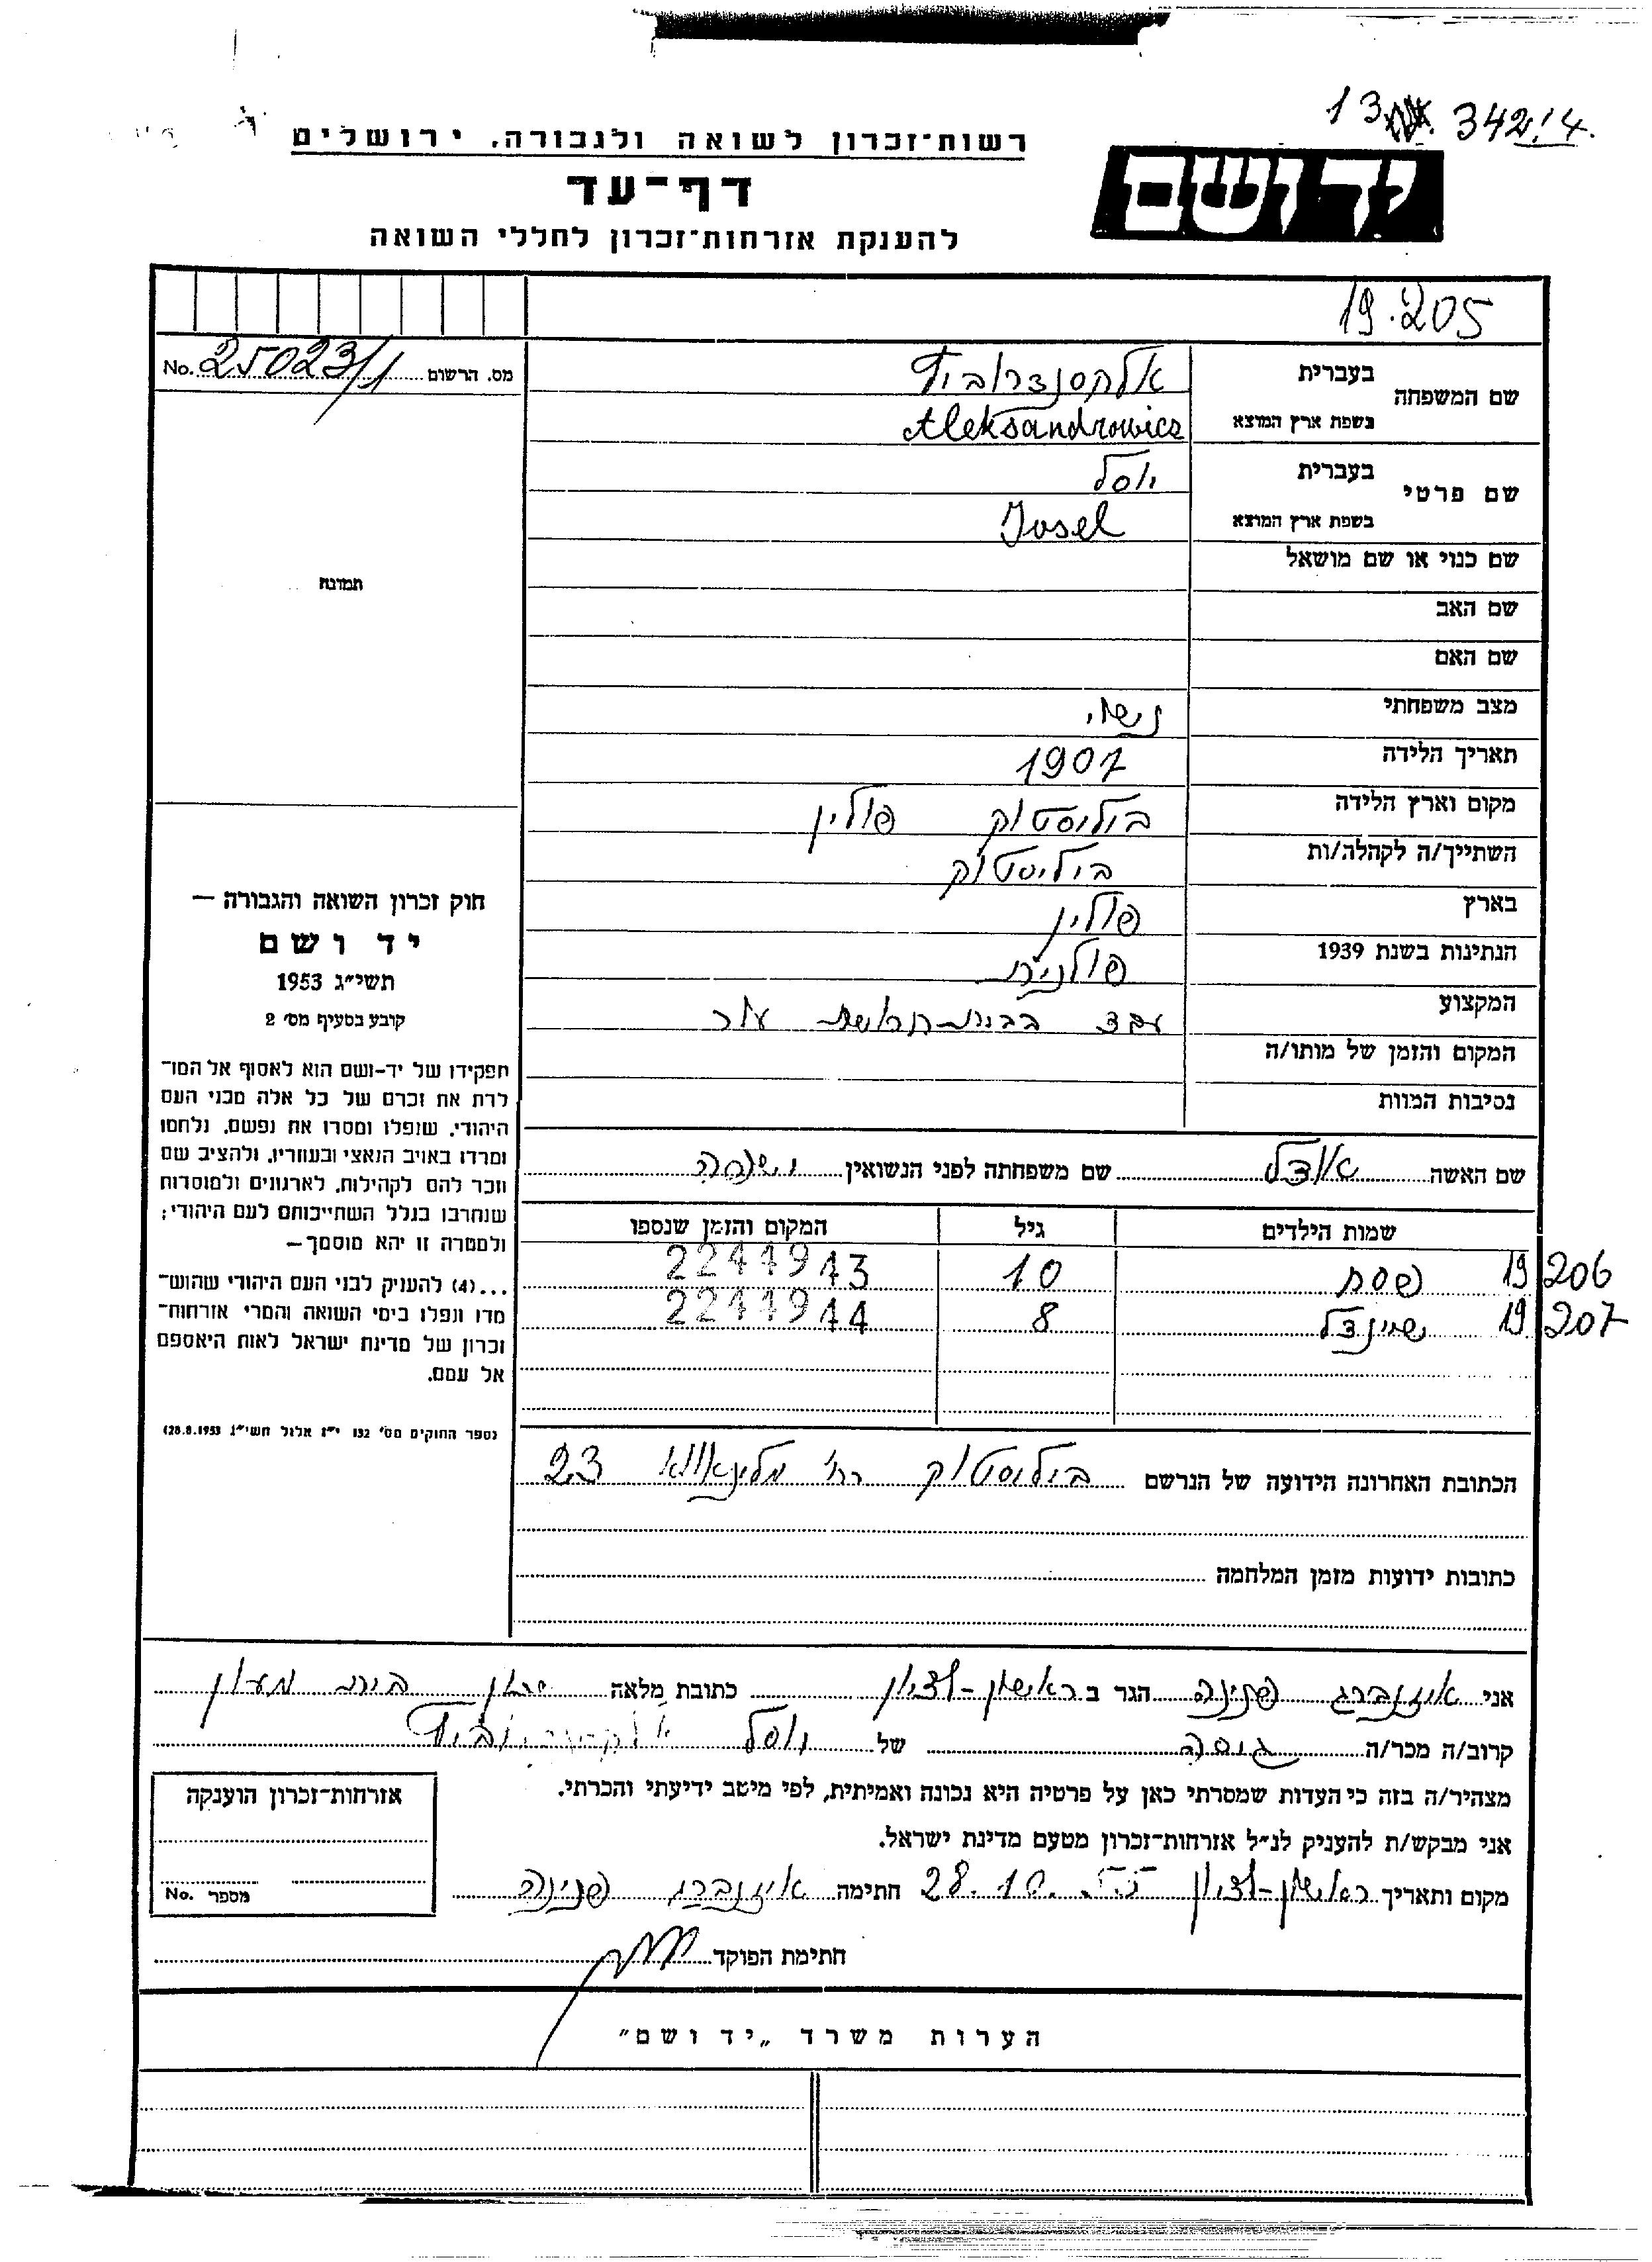 13 342/14.
רשות־זכרון לשואה ולגבורה, ירושלים
יד ושם
דף־עד
להענקת אזרחות־זכרון לחללי השואה
19.205
מס. הרשום 25023/1 No.
שם המשפחה בעברית אלקסנדרוביץ
בשפת ארץ המוצא Aleksandrowicz
שם פרטי בעברית יוסל
בשפת ארץ המוצא Josel
שם כנוי או שם מושאל
תמונה
שם האב
שם האם
מצב משפחתי נשוי
תאריך הלידה 1907
מקום וארץ הלידה ביליסטוק פולין
השתייך/ה לקהלה/ות ביליסטוק
בארץ פולין
הנתינות בשנת 1939 פולנית
המקצוע עבד בבית-חרושת עור
המקום והזמן של מותו/ה
נסיבות המוות
חוק זכרון השואה והגבורה —
יד ושם
תשי״ג 1953
קובע בסעיף מס׳ 2
תפקידו של יד-ושם הוא לאסוף אל המו־
לדת את זכרם של כל אלה מבני העם
היהודי, שנפלו ומסרו את נפשם, נלחמו
ומרדו באויב הנאצי ובעוזריו, ולהציב שם
וזכר להם לקהילות, לארגונים ולמוסדות
שנחרבו בגלל השתייכותם לעם היהודי;
ולמטרה זו יהא מוסמך—
...(4) להעניק לבני העם היהודי שהוש־
מדו ונפלו בימי השואה והמרי אזרחות־
זכרון של מדינת ישראל לאות היאספם
אל עמם.
(ספר החוקים מס׳ 132 י״ז אלול תשי״ג 28.8.1953)
שם האשה אידל שם משפחתה לפני הנשואין
שמות הילדים גיל המקום והזמן שנספו
19 206 פסח 10 2244943
19 207 שיינדל 8 2244944
הכתובת האחרונה הידועה של הנרשם ביליסטוק רח׳ 23
כתובות ידועות מזמן המלחמה
אני איזנברג פנינה הגר ב ראשון-לציון כתובת מלאה שכון בית מעון
קרוב/ה מכר/ה גיסה של יוסל אלקסנדרוביץ
מצהיר/ה בזה כי העדות שמסרתי כאן על פרטיה היא נכונה ואמיתית, לפי מיטב ידיעתי והכרתי.
אני מבקש/ת להעניק לנ״ל אזרחות־זכרון מטעם מדינת ישראל.
מקום ותאריך ראשון-לציון 28.10.55 חתימה איזנברג פנינה
אזרחות־זכרון הוענקה
מספר No.
חתימת הפוקד
הערות משרד „יד ושם״